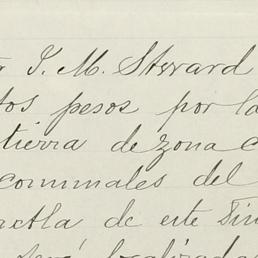 r J. M. Steward
tos pesos por la
tierra de zona c
comunales del
actla de este Din
será localizadas